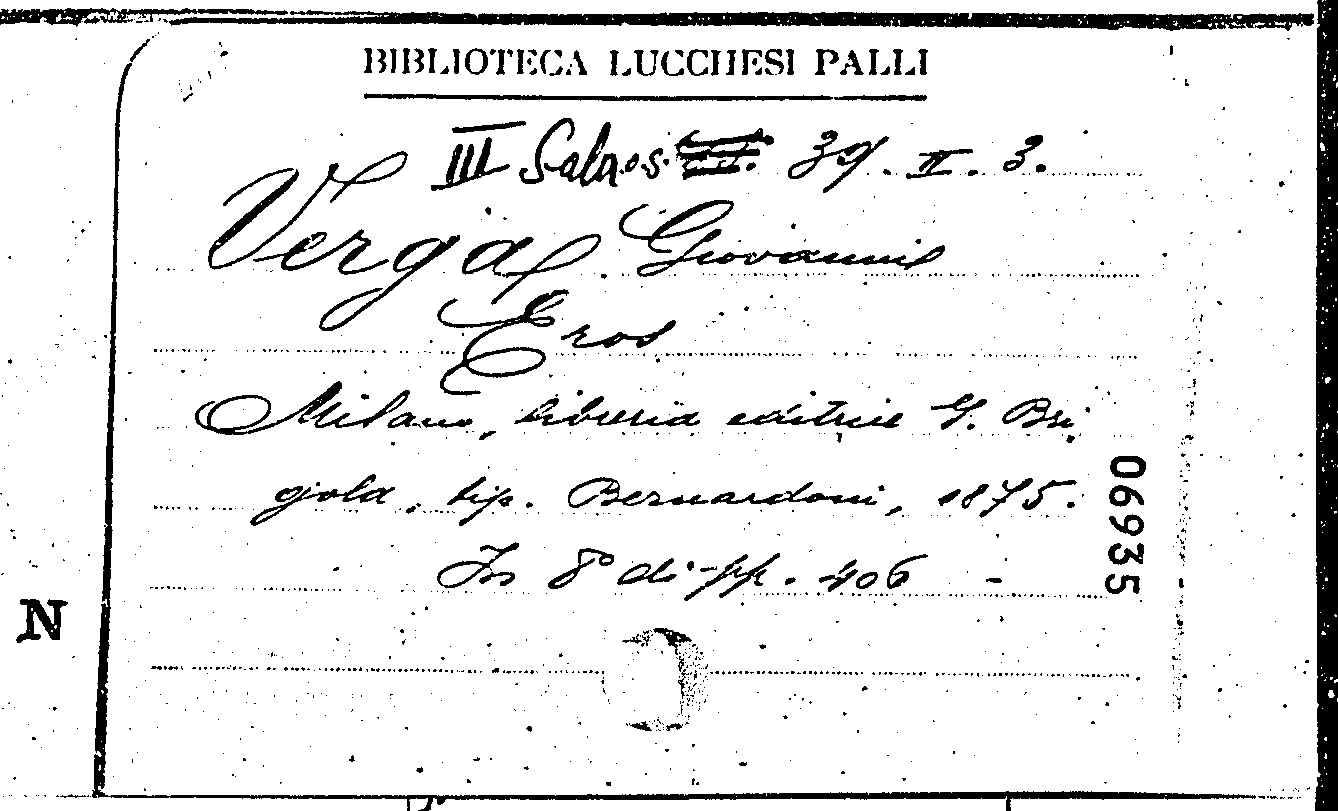 BIBLIOTECA LUCCHESI PALLI
III Sala 39. II. 3.
Verga, Giovanni
Eros
Milano, libreria editrice G. Bri
gola, tip. Bernardoni, 1875.
In 8° di pp. 406 -
06935
N